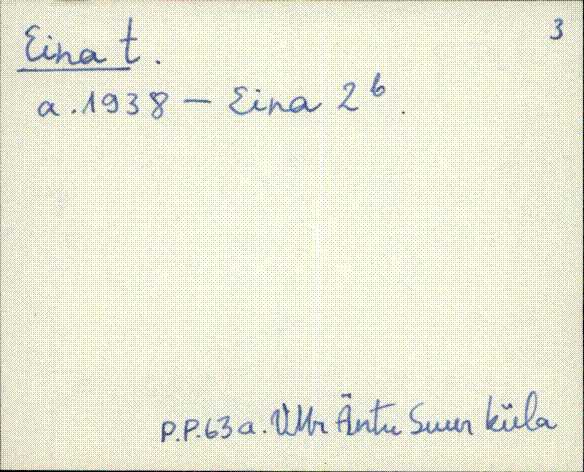 3
Eina t.
a. 1938 – Eina 2ᵇ.
P.P.63a. VMr Äntu Suurküla